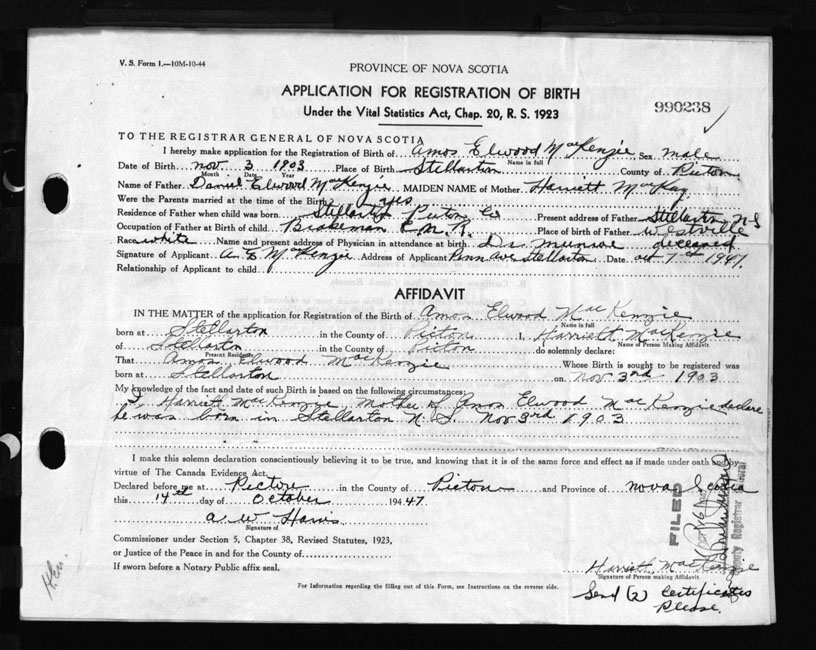 V. S. Form 1.—10M-10-44
PROVINCE OF NOVA SCOTIA
APPLICATION FOR REGISTRATION OF BIRTH
Under the Vital Statistics Act, Chap. 20, R. S. 1923
990238
TO THE REGISTRAR GENERAL OF NOVA SCOTIA
I hereby make application for the Registration of Birth of Amos Elwood MacKenzie Sex male
Name in full
Date of Birth Nov. 3 1903 Place of Birth Stellarton County of Pictou
Month Date Year
Name of Father Daniel Elwood MacKenzie MAIDEN NAME of Mother Harriett MacKay
Were the Parents married at the time of the Birth? yes
Residence of Father when child was born Stellarton Pictou Co Present address of Father Stellarton N S
Occupation of Father at Birth of child Brakeman C.N.R. Place of birth of Father Westville
Race white Name and present address of Physician in attendance at birth Dr. Munroe deceased
Signature of Applicant A. E. MacKenzie Address of Applicant Penn Ave Stellarton Date Oct 7th 1947.
Relationship of Applicant to child
AFFIDAVIT
IN THE MATTER of the application for Registration of the Birth of Amos Elwood MacKenzie
Name in full
born at Stellarton in the County of Pictou I, Harriett MacKenzie
Name of Person Making Affidavit
of Stellarton in the County of Pictou do solemnly declare:
Present Residence
That Amos Elwood MacKenzie Whose Birth is sought to be registered was
born at Stellarton on Nov 3rd 1903
My knowledge of the fact and date of such Birth is based on the following circumstances:
I, Harriett MacKenzie Mother of Amos Elwood MacKenzie declare
he was born in Stellarton N. S. Nov 3rd 1903
I make this solemn declaration conscientiously believing it to be true, and knowing that it is of the same force and effect as if made under oath and by
virtue of The Canada Evidence Act.
Declared before me at Pictou in the County of Pictou and Province of Nova Scotia
this 14th day of October 194 47
A. W. Harris
Signature of
Commissioner under Section 5, Chapter 38, Revised Statutes, 1923,
or Justice of the Peace in and for the County of
If sworn before a Notary Public affix seal.
FILED
Deputy Registrar General
Harriett MacKenzie
Signature of Person making Affidavit
For Information regarding the filling out of this Form, see Instructions on the reverse side.
Send (2) Certificates
Please.